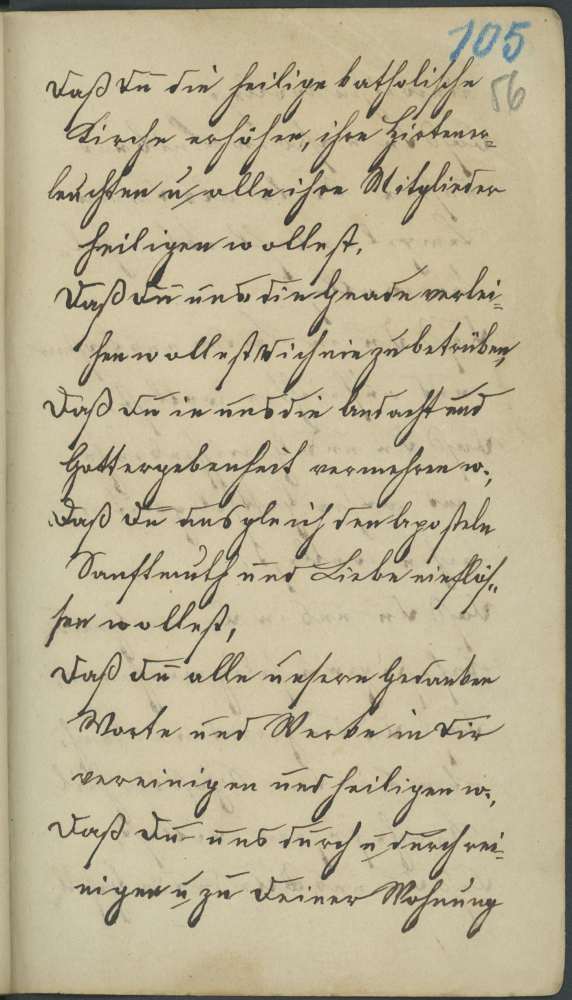 105
56
Daß Du die heilige katholische
Kirche erhöhen, ihre Hirten er=
leuchten u. alle ihre Mitglieder
heiligen wollest,
Daß Du uns die Gnade verlei=
hen wollest Dich nie zu betrüben,
Daß Du in uns die Andacht und
Gottergebenheit vermehren w.,
Daß Du uns gleich den Aposteln
Sanftmuth und Liebe einflös=
sen wollest,
Daß Du alle unsere Gedanken
Worte und Werke in Dir
vereinigen und heiligen w.,
Daß Du uns durch u. durch rei=
nigen u. zu Deiner Wohnung